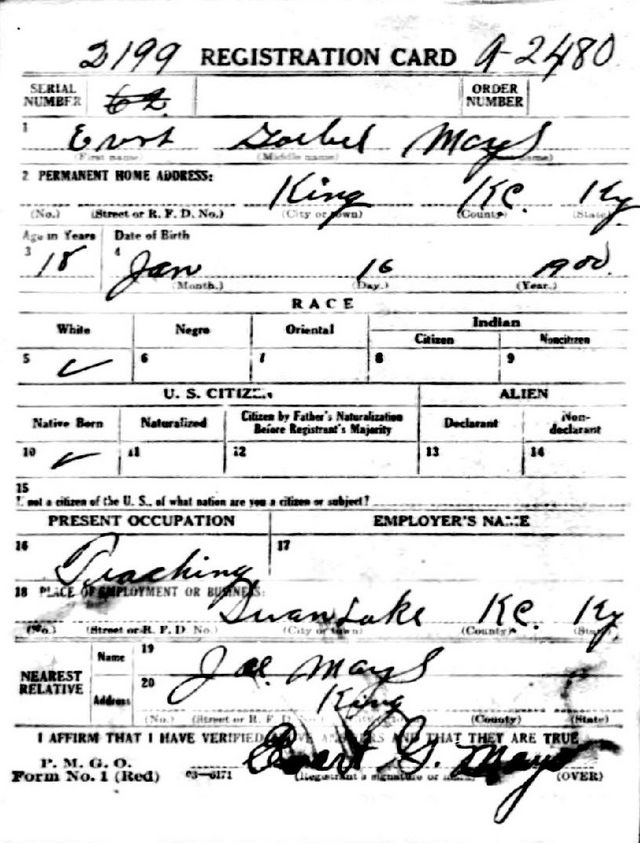 2199 REGISTRATION CARD A-2480
SERIAL NUMBER 62 ORDER NUMBER
1 Evert Goebel Mays
(First name) (Middle name) name)
2 PERMANENT HOME ADDRESS: King KC. Ky
(No.) (Street or R. F. D. No.) (City or town) (County) (State)
Age in Years Date of Birth
3 18 4 Jan 16 1900.
(Month.) (Day.) (Year.)
RACE
White Negro Oriental Indian
Citizen Noncitizen
5 ✓ 6 7 8 9
U. S. CITIZEN ALIEN
Native Born Naturalized Citizen by Father's Naturalization Before Registrant's Majority Declarant Non-declarant
10 ✓ 11 12 13 14
15
If not a citizen of the U. S., of what nation are you a citizen or subject?
PRESENT OCCUPATION EMPLOYER'S NAME
16 Teaching 17
18 PLACE OF EMPLOYMENT OR BUSINESS:
Swan Lake KC. Ky
(No.) (Street or R. F. D. No.) (City or town) (County) (State)
NEAREST RELATIVE Name 19 Joe. Mays
Address 20 King
(No.) (Street or R. F. D. (County) (State)
I AFFIRM THAT I HAVE VERIFIED ABOVE ANSWERS AND THAT THEY ARE TRUE
P. M. G. O.
Form No. 1 (Red) 03—6171 Evert G. Mays
(Registrant's signature or mark) (OVER)